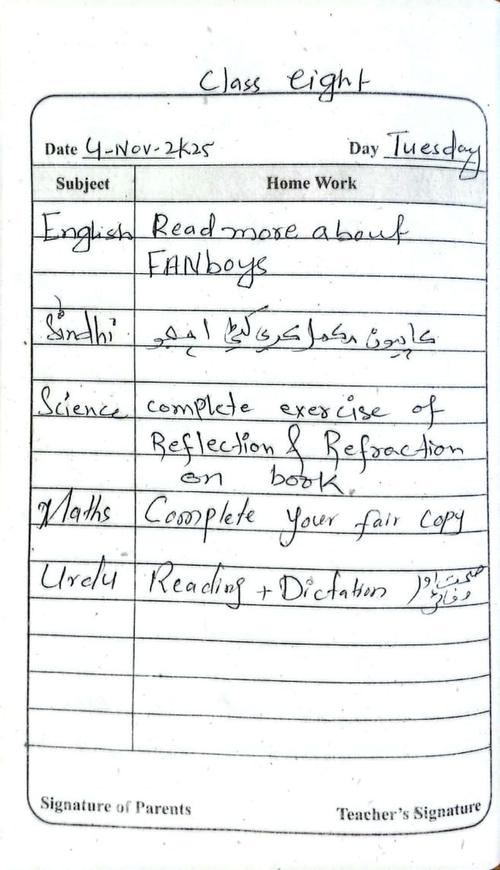 Class eight
Date 4-Nov-2k25 Day Tuesday
Subject Home Work
English Read more about
FANboys
Sindhi ڪاپيون مڪمل ڪري کڻي اچجو
Science complete exercise of
Reflection & Refraction
on book
Maths Complete your fair copy
Urdu Reading + Dictation صحت اور
صفائی
Signature of Parents Teacher's Signature